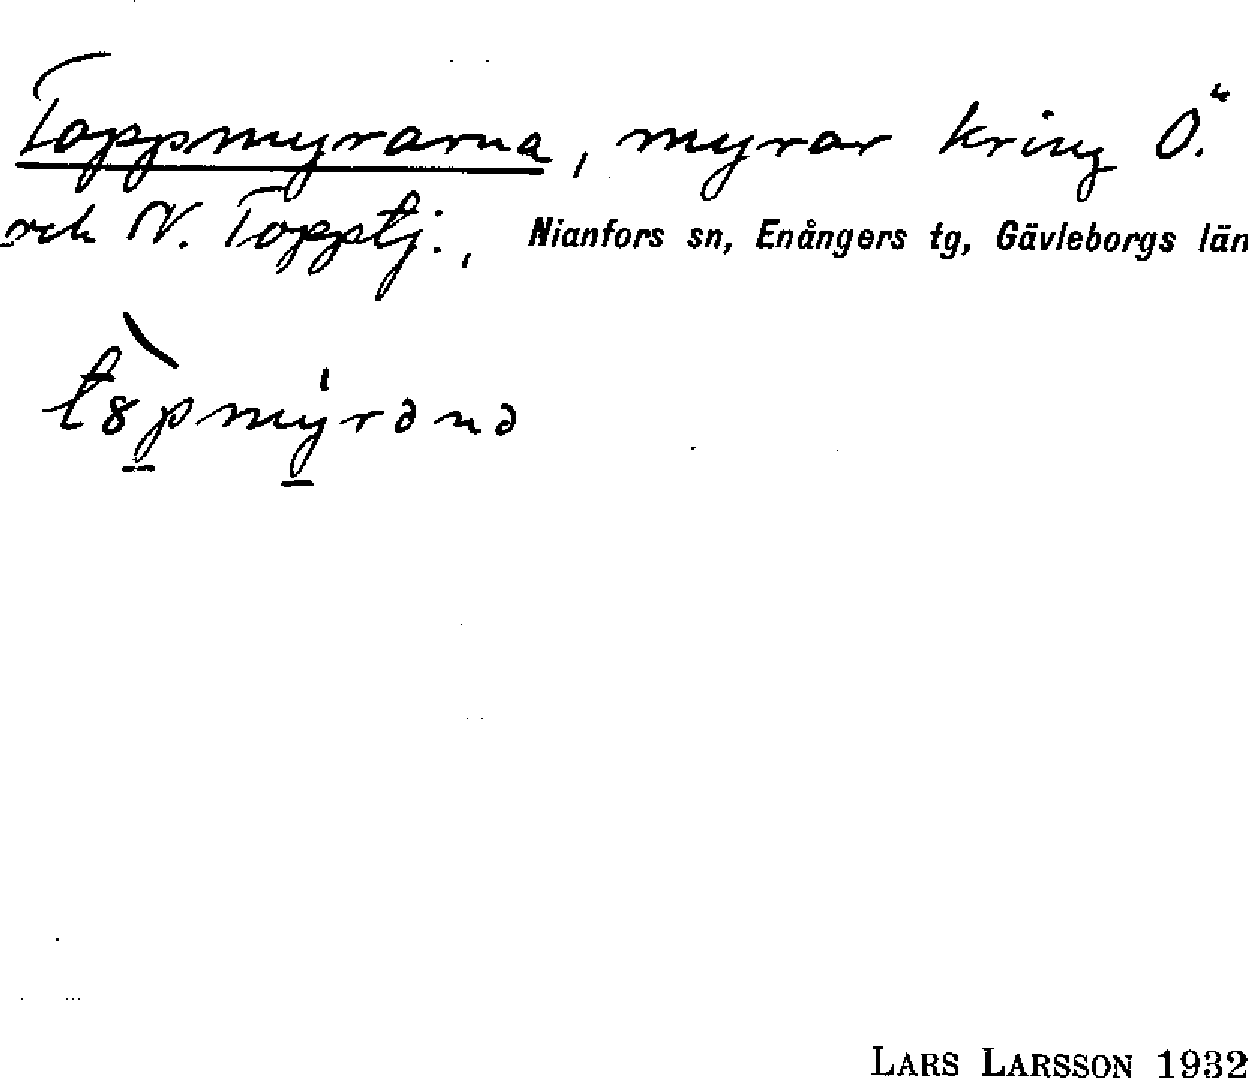 Toppmyrarna, myrar kring Ö.
och N. Topptj., Nianfors sn, Enångers tg, Gävleborgs län
t8̀pmy̍rənə
LARS LARSSON 1932